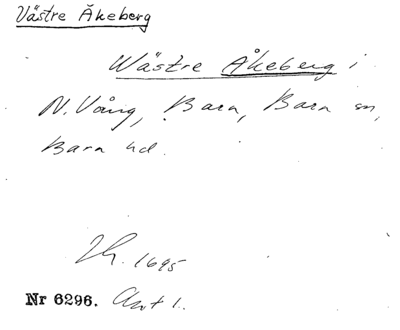 Västre Åkeberg
Wästre Åkeberg i
N. Vång, Bara, Bara sn,
Bara hd.
1695
Nr 6296. Akt 1.